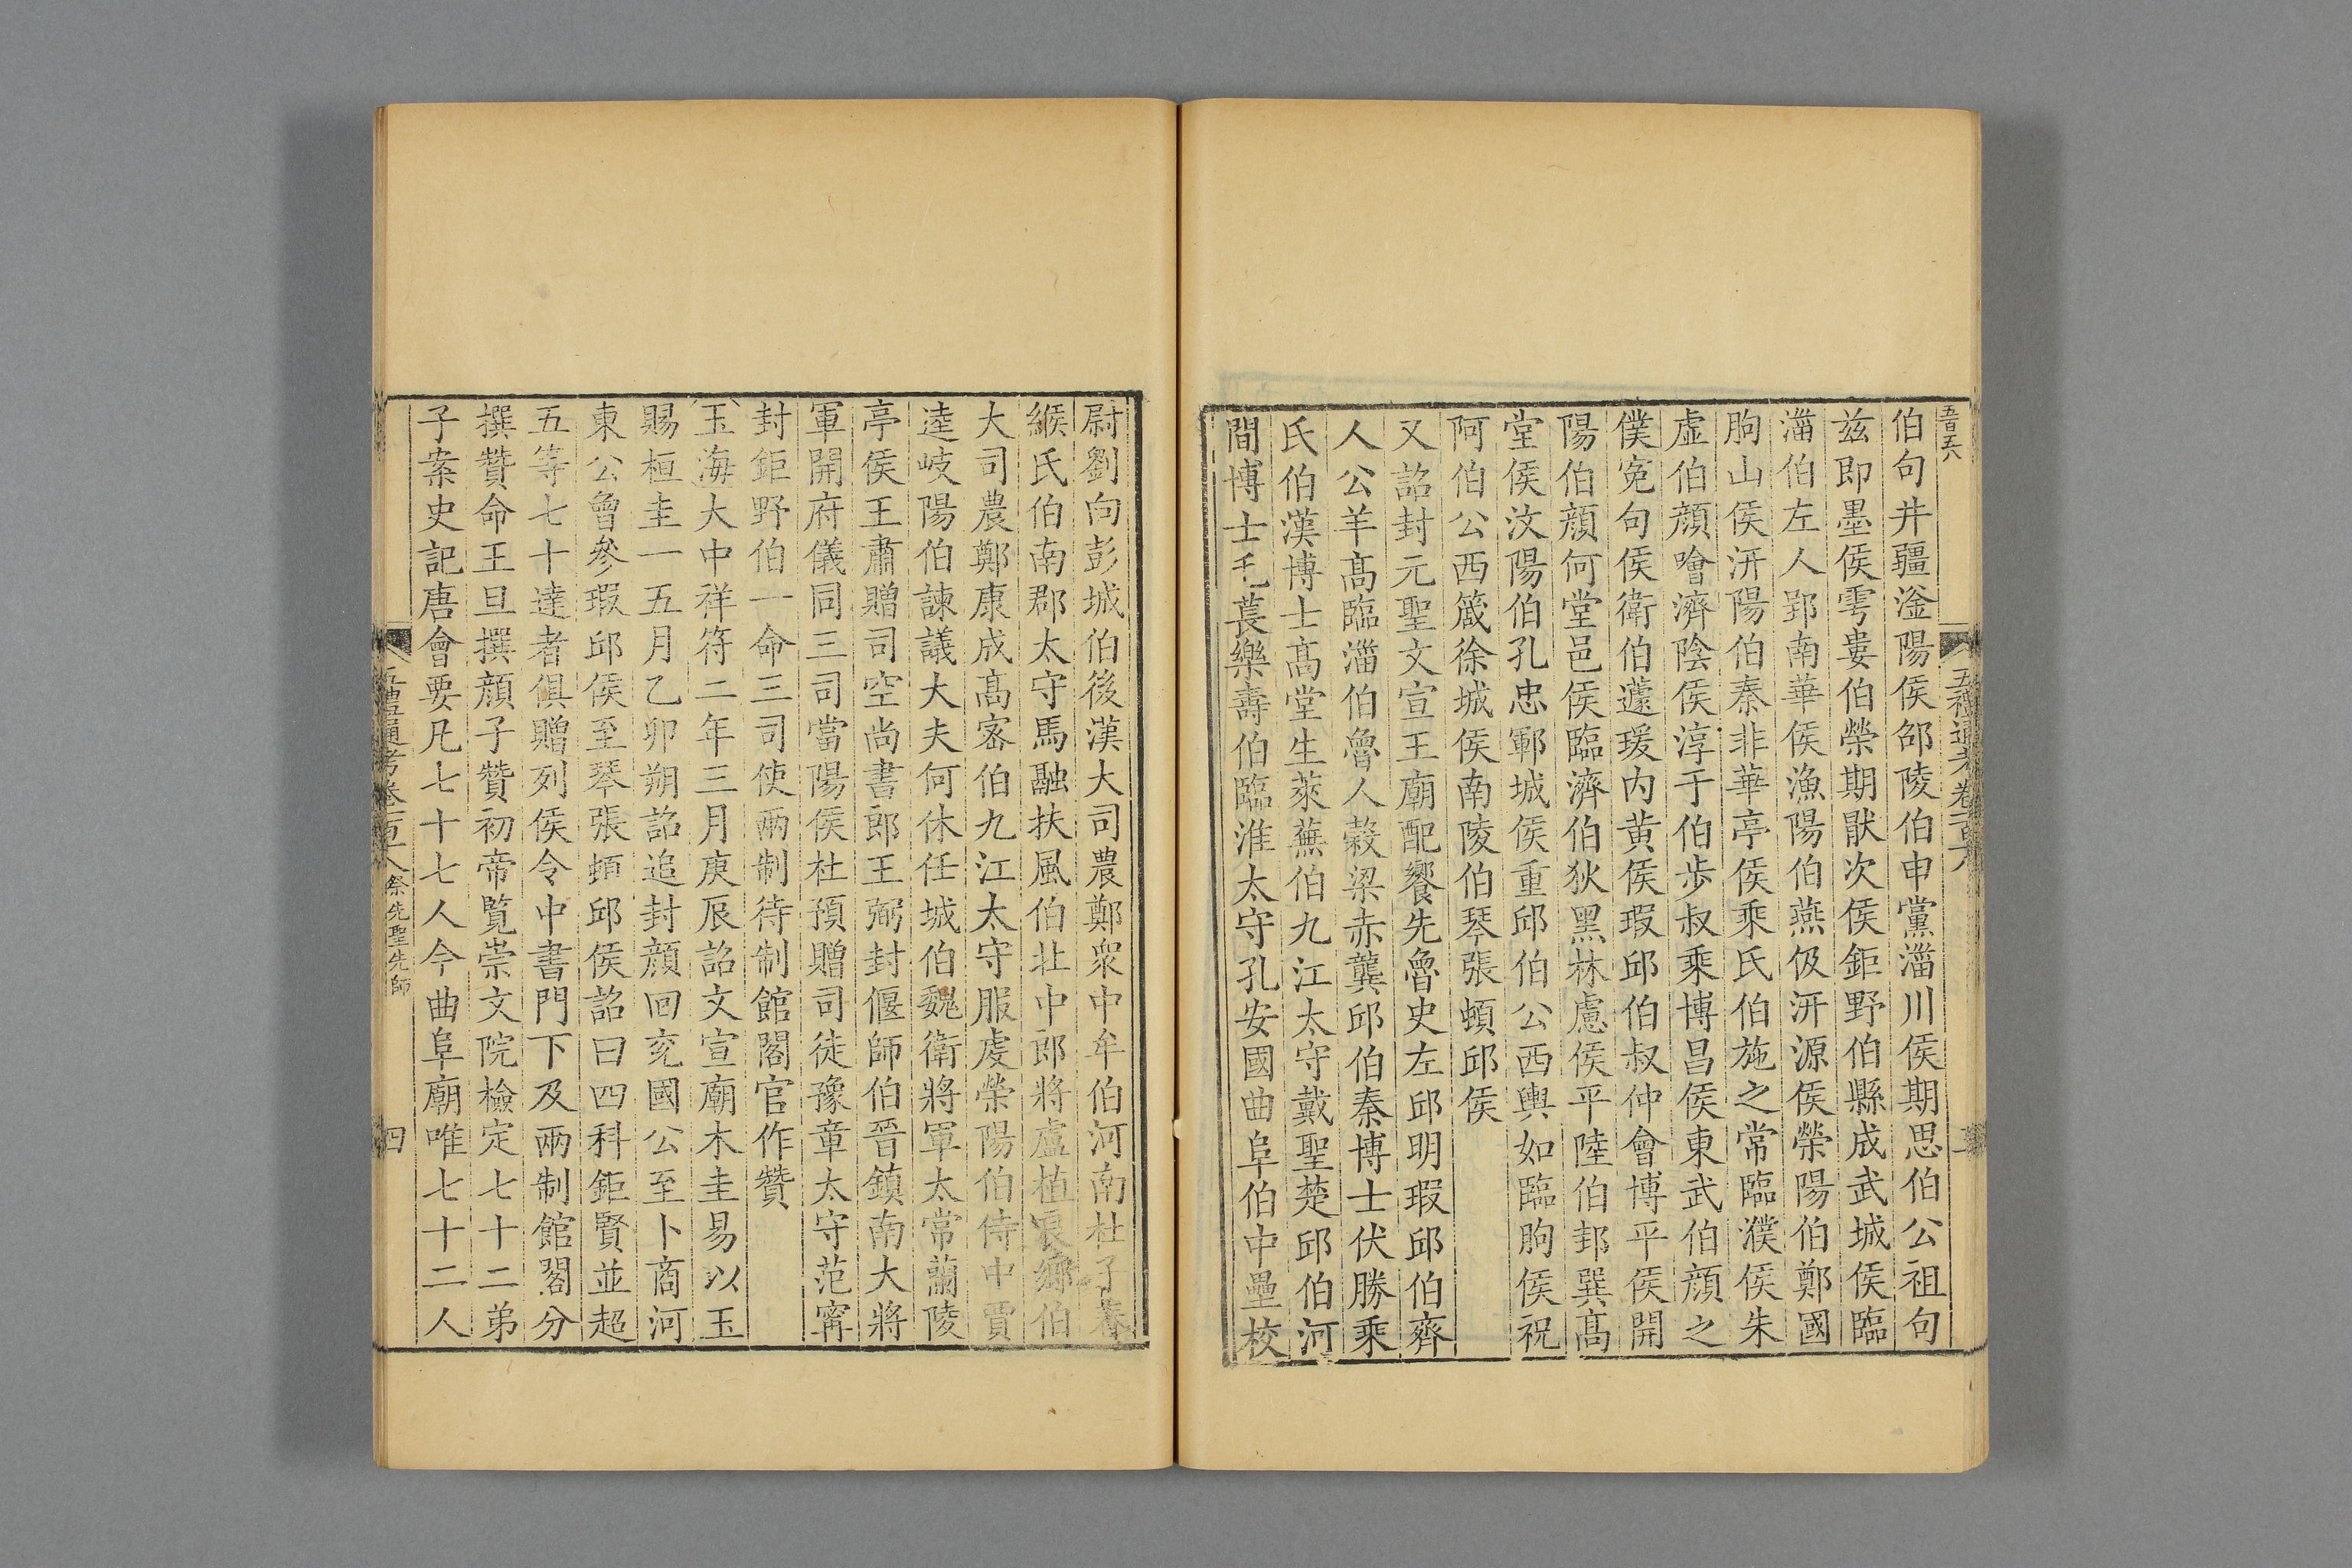 五百六
伯句井疆滏陽侯郤陵伯申黨淄川侯期思伯公祖句
兹即墨侯雩婁伯榮期猒次侯鉅野伯縣成武城侯臨
淄伯左人郢南華侯漁陽伯燕伋汧源侯滎陽伯鄭國
朐山侯汧陽伯秦非華亭侯乘氏伯施之常臨濮侯朱
虛伯顔噲濟陰侯淳于伯步叔乘博昌侯東武伯顔之
僕寃句侯衛伯蘧瑗内黄侯瑕邱伯叔仲會博平侯開
陽伯顔何堂邑侯臨濟伯狄黑林慮侯平陸伯邽巽髙
堂侯汶陽伯孔忠鄆城侯重邱伯公西輿如臨朐侯祝
阿伯公西箴徐城侯南陵伯琴張頓邱侯
又詔封元聖文宣王廟配饗先魯史左邱明瑕邱伯齊
人公羊髙臨淄伯魯人穀梁赤龔邱伯秦博士伏勝乘
氏伯漢博士髙堂生萊蕪伯九江太守戴聖楚邱伯河
間博士毛萇樂壽伯臨淮太守孔安國曲阜伯中壘校
尉劉向彭城伯後漢大司農鄭衆中牟伯河南杜子春
緱氏伯南郡太守馬融扶風伯北中郎將盧植良鄉伯
大司農鄭康成髙密伯九江太守服虔滎陽伯侍中賈
逵岐陽伯諫議大夫何休任城伯魏衛將軍太常蘭陵
亭侯王肅贈司空尚書郎王弼封偃師伯晉鎮南大將
軍開府儀同三司當陽侯杜預贈司徒豫章太守范甯
封鉅野伯一命三司使兩制待制館閣官作贊
玉海大中祥符二年三月庚辰詔文宣廟木圭易以玉
賜桓圭一五月乙卯朔詔追封顔回兖國公至卜商河
東公曾參瑕邱侯至琴張頓邱侯詔曰四科鉅賢並超
五等七十達者俱贈列侯令中書門下及兩制館閣分
撰贊命王旦撰顔子贊初帝覽崇文院檢定七十二弟
子案史記唐會要凡七十七人今曲阜廟唯七十二人
五禮通考卷一百十八 祭先聖先師 四